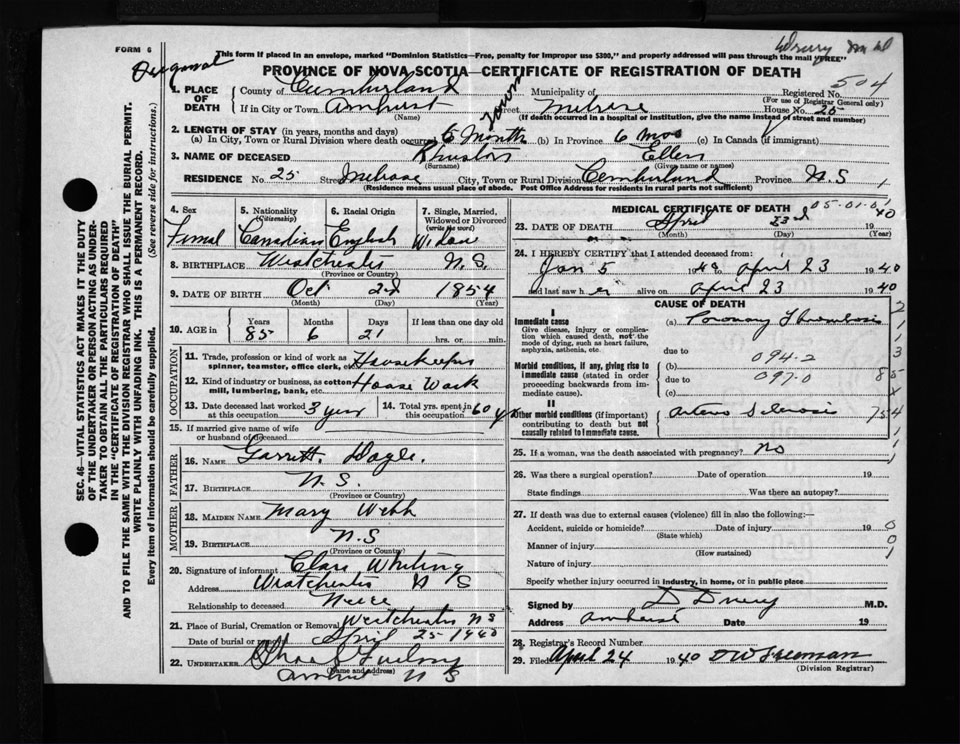 FORM 6
This form if placed in an envelope, marked "Dominion Statistics—Free, penalty for improper use $300," and properly addressed will pass through the mail "FREE"
Original
PROVINCE OF NOVA SCOTIA—CERTIFICATE OF REGISTRATION OF DEATH
504
1. PLACE OF DEATH
County of Cumberland
Municipality of
Registered No.
(For use of Registrar General only)
If in City or Town Amherst Street Melrose House No. 25
(Name)
(If death occurred in a hospital or institution, give the name instead of street and number)
Town
2. LENGTH OF STAY (in years, months and days)
(a) In City, Town or Rural Division where death occurred 6 Month (b) In Province 6 mos (c) In Canada (if immigrant)
3. NAME OF DECEASED Ellen
(Surname) (Given name or names)
RESIDENCE No. 25 Street Melrose City, Town or Rural Division Cemberland Province N.S
(Residence means usual place of abode. Post Office Address for residents in rural parts not sufficient)
SEC. 46—VITAL STATISTICS ACT MAKES IT THE DUTY
OF THE UNDERTAKER OR PERSON ACTING AS UNDER-
TAKER TO OBTAIN ALL THE PARTICULARS REQUIRED
IN THE "CERTIFICATE OF REGISTRATION OF DEATH"
AND TO FILE THE SAME WITH THE DIVISION REGISTRAR WHO SHALL ISSUE THE BURIAL PERMIT.
WRITE PLAINLY WITH UNFADING INK. THIS IS A PERMANENT RECORD.
Every item of information should be carefully supplied. (See reverse side for instructions.)
4. Sex
Femal
5. Nationality
(Citizenship)
Canadian
6. Racial Origin
English
7. Single, Married, Widowed or Divorced
(write the word)
Widow
8. BIRTHPLACE Westchester N.S.
(Province or Country)
9. DATE OF BIRTH Oct 2nd 1854
(Month) (Day) (Year)
10. AGE in
Years Months Days If less than one day old
85 6 21 hrs. or min.
OCCUPATION
11. Trade, profession or kind of work as spinner, teamster, office clerk, etc. Housekeeper
12. Kind of industry or business, as cotton mill, lumbering, bank, etc. House Work
13. Date deceased last worked at this occupation 3 year
14. Total yrs. spent in this occupation 60 y
15. If married give name of wife or husband of deceased
FATHER
16. NAME Garrett Dayle.
17. BIRTHPLACE N.S.
(Province or Country)
MOTHER
18. MAIDEN NAME Mary Webb
19. BIRTHPLACE N.S
(Province or Country)
20. Signature of informant Clara Whiting
Address Westchester N S
Relationship to deceased Neice
21. Place of Burial, Cremation or Removal Westchester N S
Date of burial or April 25-1940
22. UNDERTAKER
(Name and address)
Amherst N S
MEDICAL CERTIFICATE OF DEATH
05-01-01
23. DATE OF DEATH April 23rd 1940
(Month) (Day) (Year)
24. I HEREBY CERTIFY that I attended deceased from:
Jan 5 1940 to April 23 1940
and last saw her alive on April 23 1940
CAUSE OF DEATH
I
Immediate cause
Give disease, injury or complication which caused death, not the mode of dying, such as heart failure, asphyxia, asthenia, etc.
(a) Coronary Thrombosis
due to
094-2
Morbid conditions, if any, giving rise to immediate cause (stated in order proceeding backwards from immediate cause).
(b)
due to
097-0
(c)
II
Other morbid conditions (if important) contributing to death but not causally related to immediate cause.
Arterio Sclerosis
25. If a woman, was the death associated with pregnancy? No
26. Was there a surgical operation? Date of operation 19
State findings Was there an autopsy?
27. If death was due to external causes (violence) fill in also the following:—
Accident, suicide or homicide? Date of injury 19
(State which)
Manner of injury
(How sustained)
Nature of injury
Specify whether injury occurred in industry, in home, or in public place
Signed by D Drury M.D.
Address Amherst Date 19
28. Registrar's Record Number
29. Filed April 24 1940 D W Freeman
(Division Registrar)